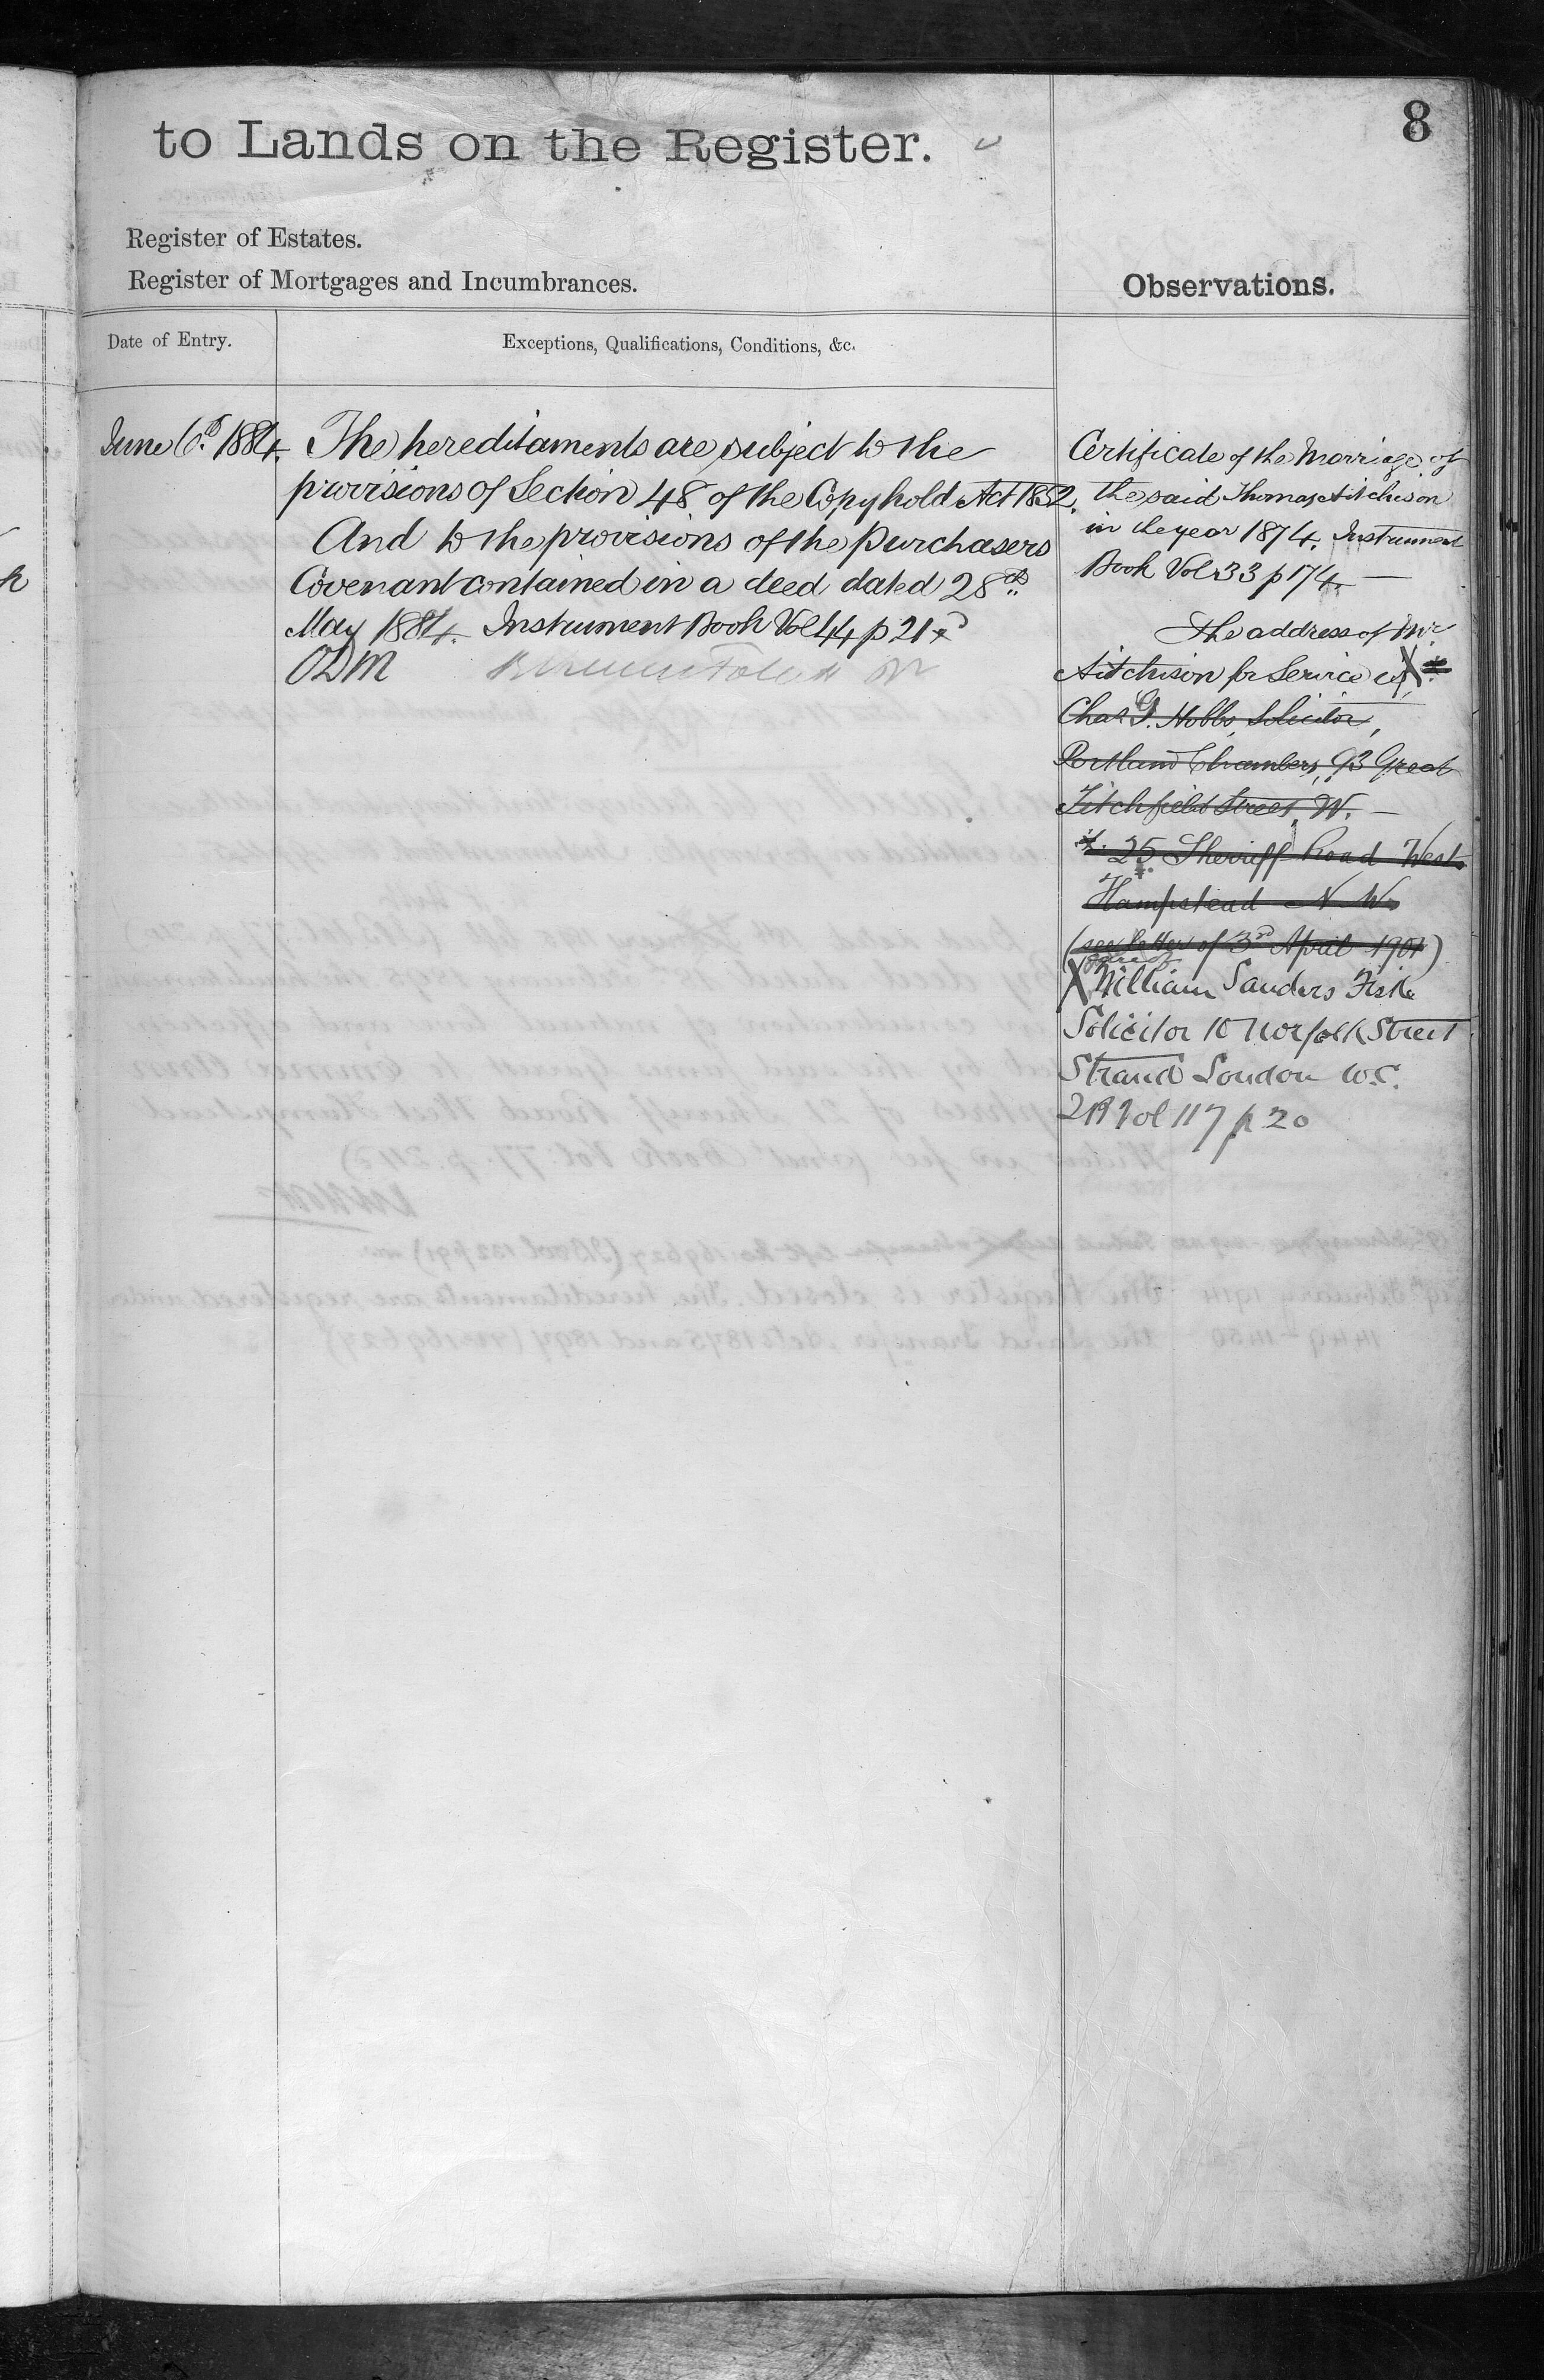 8
to Lands on the Register.
Register of Estates.
Register of Mortgages and Incumbrances.
Observations.
Date of Entry.
Exceptions, Qualifications, Conditions, &c.
June 6th 1884.
The hereditaments are subject to the
provisions of Section 48 of the Copyhold Act 1852.
And to the provisions of the Purchasers
Covenant contained in a deed dated 28th
May 1884. Instrument Book Vol 44 p 21
ODM
Certificate of the Marriage of
the said Thomas Aitchison
in the year 1874. Instrument
Book Vol 33 p 174 —
The address of Mr
Aitchison for Service is X
Chas G. Hobbs, Solicitor,
Portland Chambers, 93 Great
Titchfield Street, W. —
x. 25 Sherriff Road West
Hampstead N.W.
(see letter of 3rd April 1901)
X William Sanders Fiske
Solicitor 10 Norfolk Street
Strand London W.C.
Vol 117 p 20